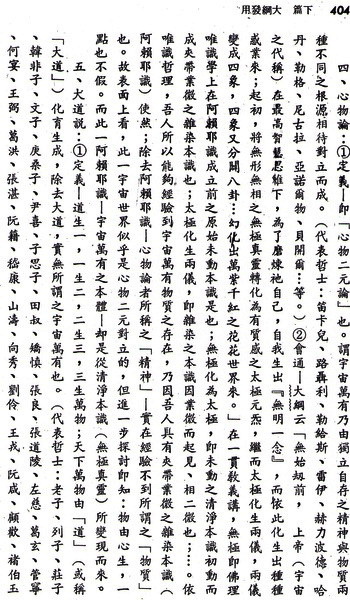 404
下篇 大綱發用
四、心物論：①定義—即「心物二元論」也。謂宇宙萬有乃由獨立自存之精神與物質兩
種不同之根源相待對立而成。（代表哲士：笛卡兒、路轟利、勒給斯、雷伊、赫力波德、哈
丹、勒格、尼古拉、亞諾爾物、貝開爾⋯等。）②會通—大綱云「無始劫前，上帝（宇宙
之代稱）在最高智慧思維下，為了磨煉祂自己，自我生出『無明一念』，而依此化生出種種
惑業來；起初，將無形無相之無極真靈轉化為有質感之太極元炁，繼而太極化生兩儀，兩儀
變成四象，四象又分闢八卦⋯幻化出萬紫千紅之花花世界來。」在一貫教義講，無極即佛理
唯識學上在阿賴耶識成立前之原始未動本識是也；無極化為太極，即未動之清淨本識初動而
成夾帶業微之雜染本識也；太極化生兩儀，即雜染之本識因業微而起見、相二微也；⋯。依
唯識哲理，吾人所以能夠經驗到宇宙萬有物質之存在，乃因吾人具有夾帶業微之雜染本識（
阿賴耶識）使然；除去阿賴耶識—心物論者所稱之「精神」—實在經驗不到所謂之「物質」
也。故表面上看，此一宇宙世界似乎是心物二元對立的，但進一步探討即知：物由心生，一
點也不假。而此一阿賴耶識—宇宙萬有之本體—却是從清淨本識（無極真靈）所變現而來。
五、大道說：①定義—大道生一，一生二，二生三，三生萬物；天下萬物由「道」（或稱
「大道」）化育生成，除去大道，實無所謂之宇宙萬有也。（代表哲士：老子、列子、莊子
、韓非子、文子、庚桑子、尹喜、子思子、田叔、矯慎、張良、張道陵、左慈、葛玄、管寧
、何宴、王弼、葛洪、張湛、阮籍、嵇康、山濤、向秀、劉伶、王戎、阮咸、顧歡、褚伯玉